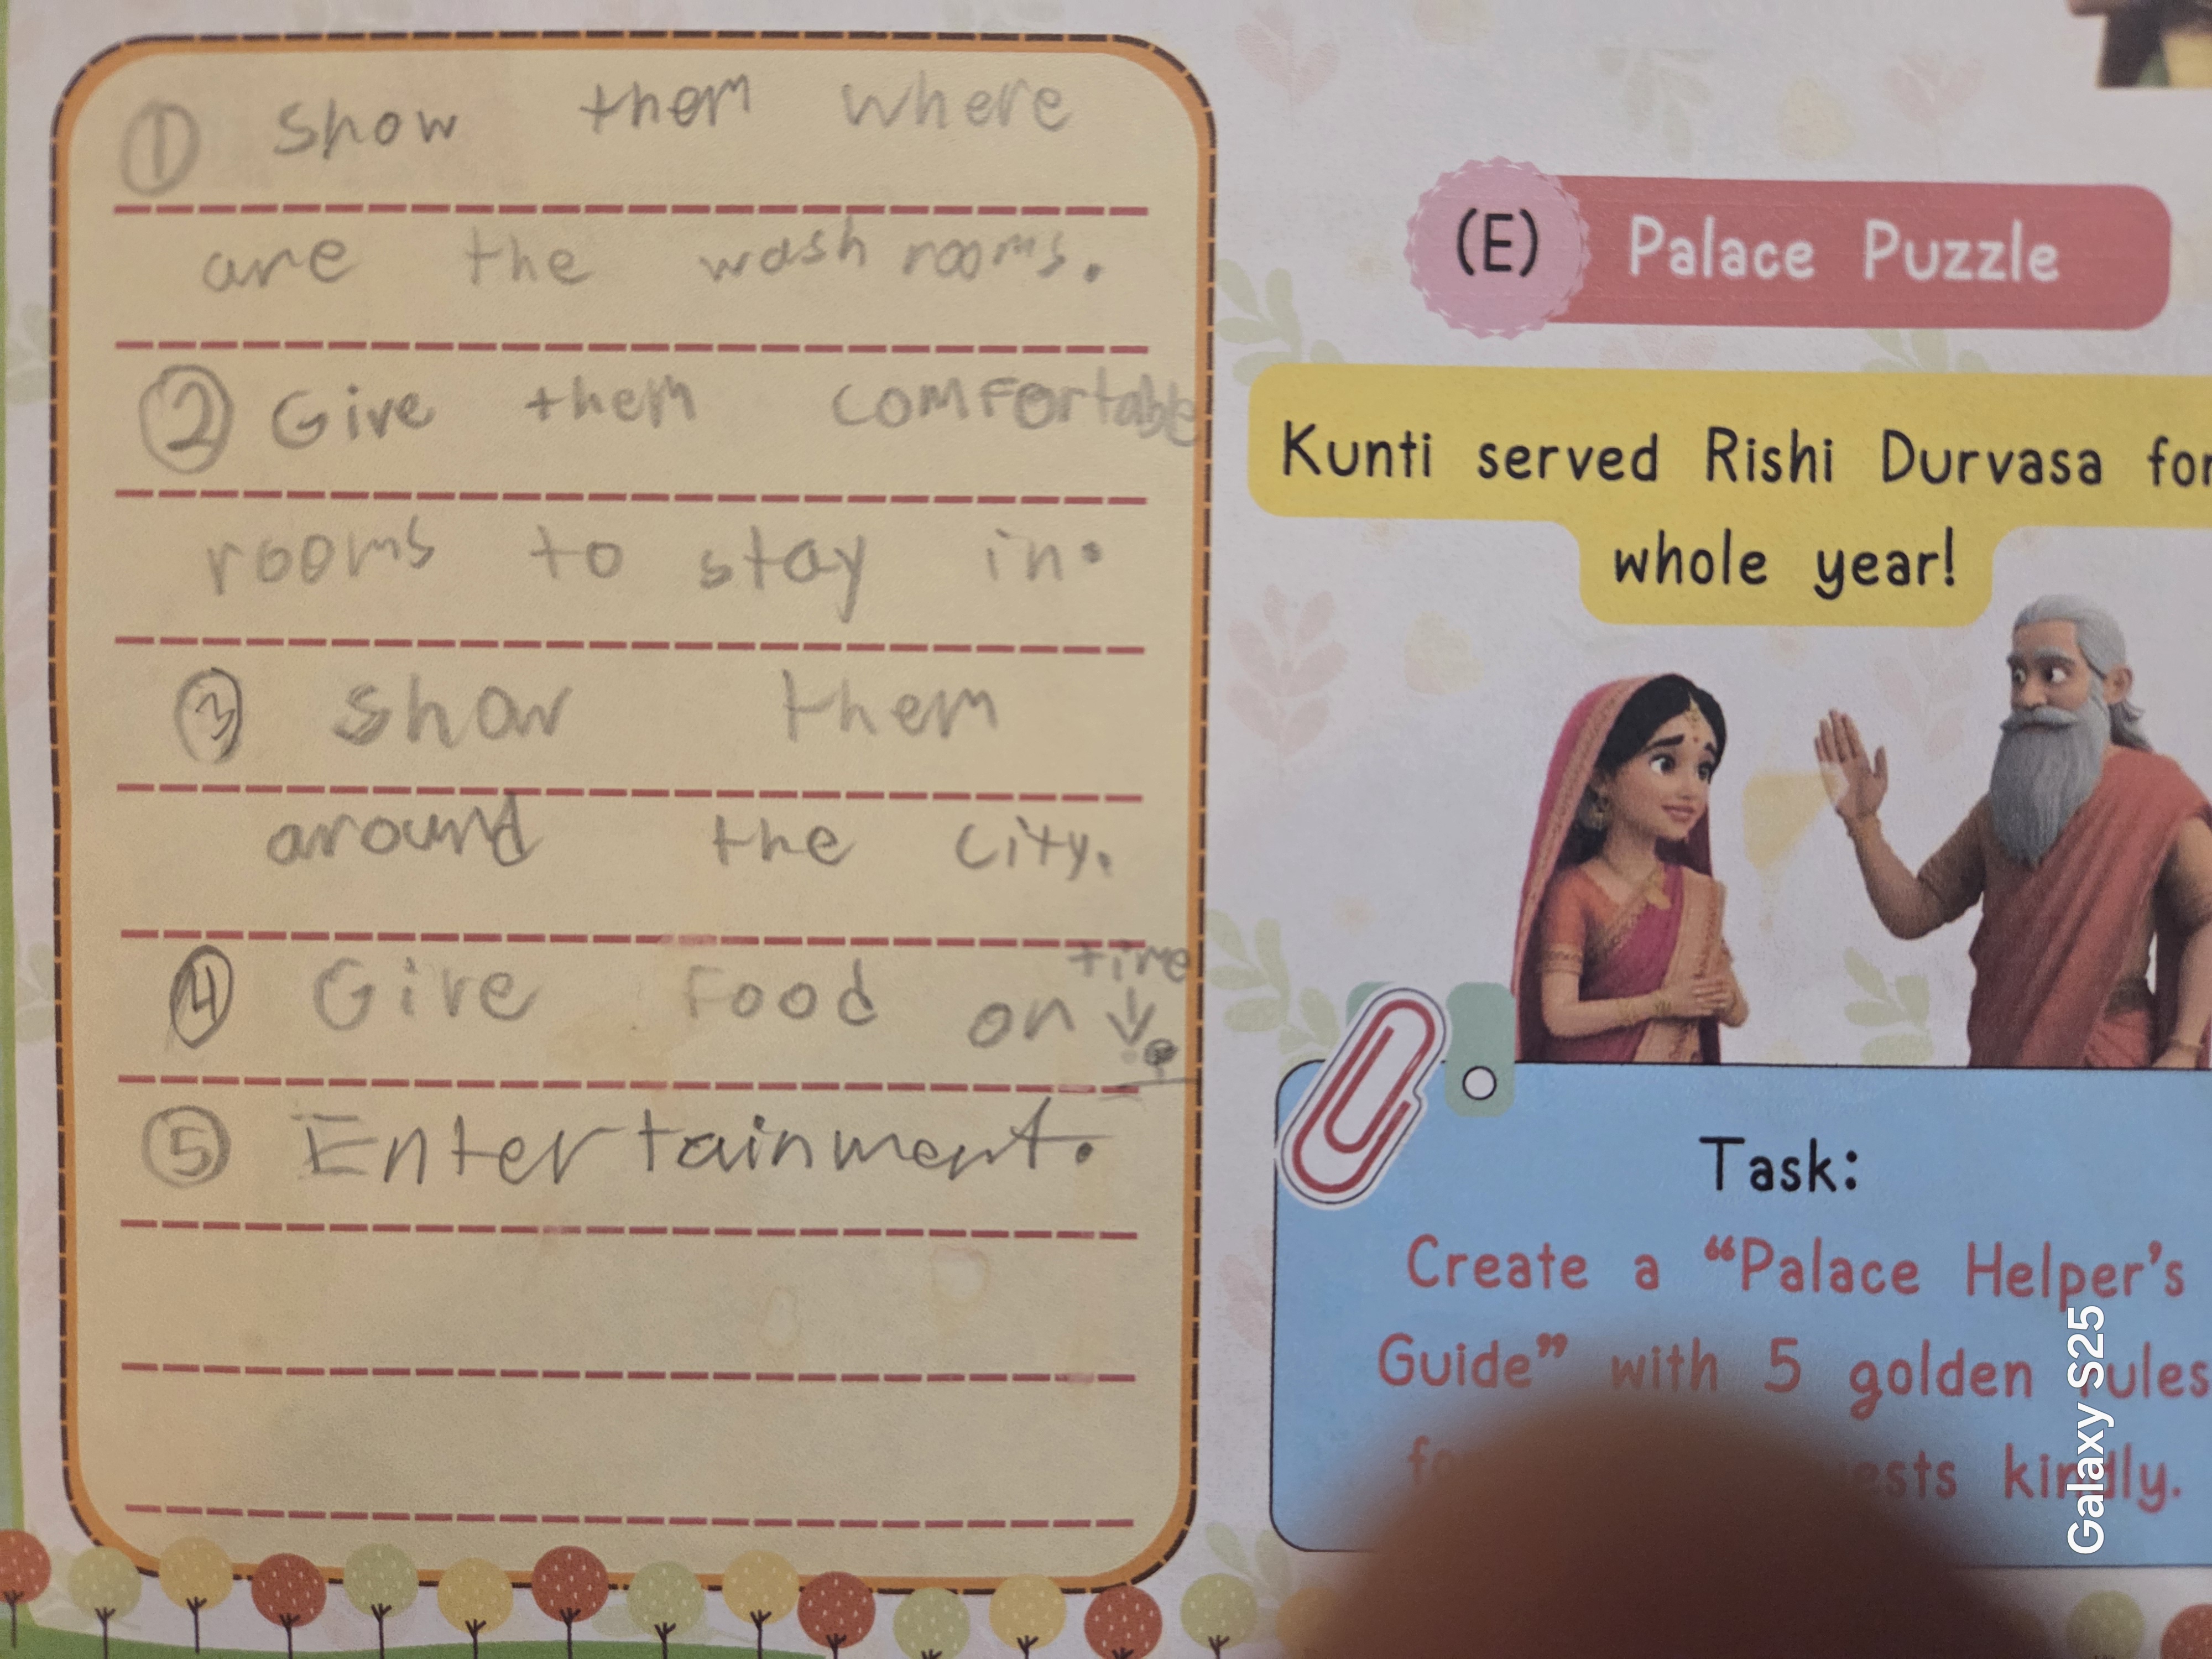 ① Show them where
are the wash rooms.
② Give them comfortable
rooms to stay in.
③ Show them
around the city.
④ Give Food on time
⑤ Entertainment.
(E) Palace Puzzle
Kunti served Rishi Durvasa for
whole year!
Task:
Create a “Palace Helper’s
Guide” with 5 golden rules
kindly.
Galaxy S25